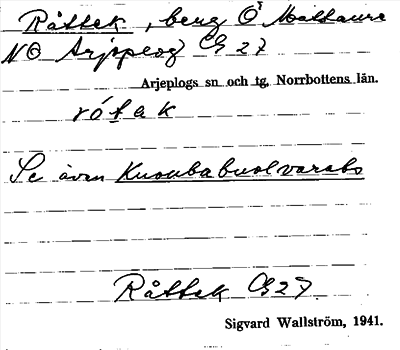 Råttek, berg Ö Mattaure
NO Arjeplog Cg 27
Arjeplogs sn och tg, Norrbottens län.
rótak
Se även Knoubabuolvarats
Råttek Cg 27.
Sigvard Wallström, 1941.